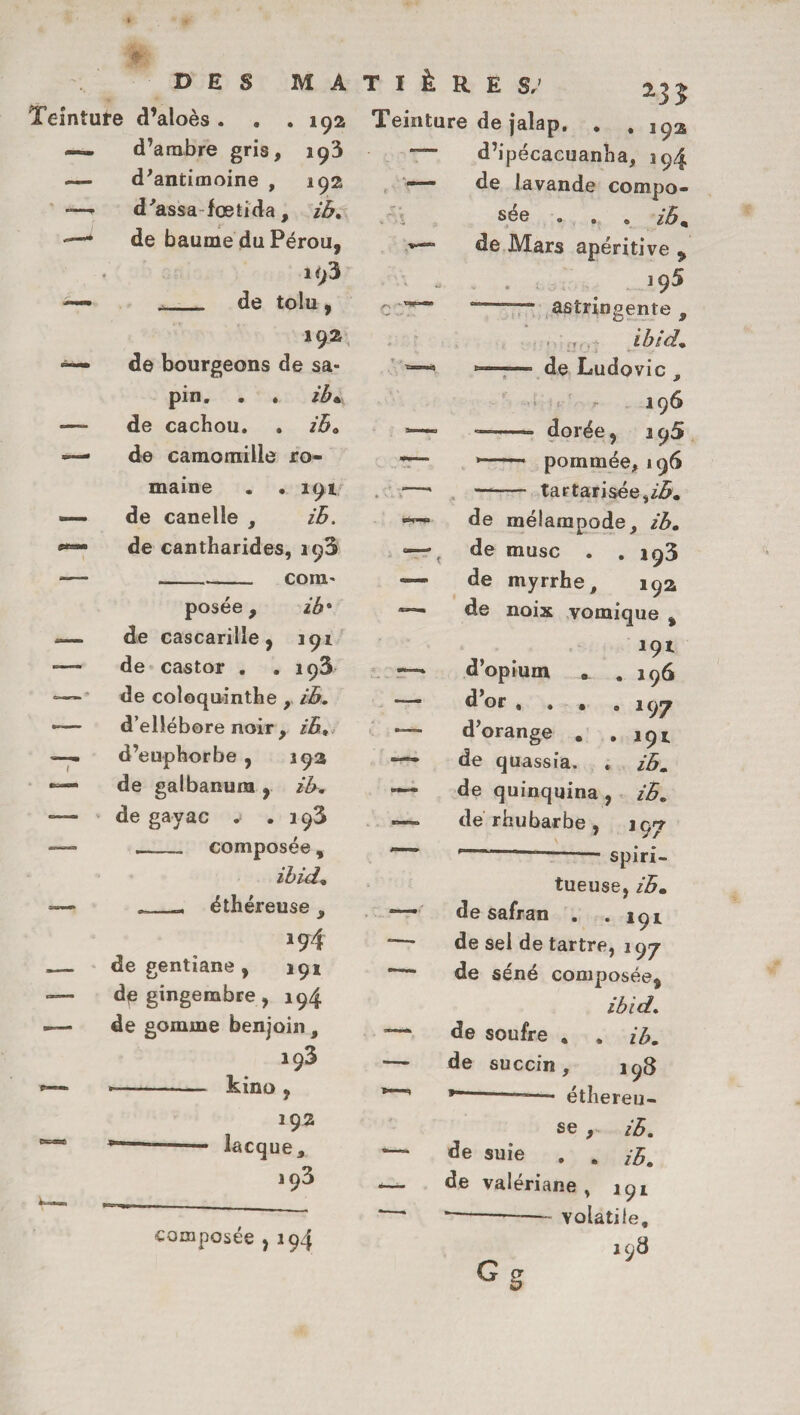 DES MATIÈRES, 233
Teinture d'aloès. . . 192
— d'ambre gris, 193
— d'antimoine, 192
— d'assa-fœtida, ib.
— de baume du Pérou,
193
— —— de tolu,
192
— de bourgeons de sa-
pin. . . ib.
— de cachou. . ib.
— de camomille ro-
maine . . 191
— de canelle, ib.
— de cantharides, 193
— —— com-
posée, ib.
— de cascarille, 191
— de castor . . 193
— de coloquinthe, ib.
— d'ellébore noir, ib.
— d'euphorbe, 192
— de galbanum, ib.
— de gayac . . 193
— —— composée,
ibid.
— —— éthéreuse,
194
— de gentiane, 191
— de gingembre, 194
— de gomme benjoin,
193
— —— kino,
192
— —— lacque,
193
— ——
composée, 194
Teinture de jalap. . . 192
— d'ipécacuanha, 194
— de lavande compo-
sée . . . ib.
— de Mars apéritive,
195
— —— astringente,
ibid.
— —— de Ludovic,
196
— —— dorée, 195
— —— pommée, 196
— —— tartarisée, ib.
— de mélampode, ib.
— de musc . . 193
— de myrrhe, 192
— de noix vomique,
191
— d'opium . . 196
— d'or, . . . 197
— d'orange . . 191
— de quassia. . ib.
— de quinquina, ib.
— de rhubarbe, 197
— —— spiri-
tueuse, ib.
— de safran . . 191
— de sel de tartre, 197
— de séné composée,
ibid.
— de soufre . . ib.
— de succin, 198
— —— éthereu-
se, ib.
— de suie . . ib.
— de valériane, 191
— —— volatile,
198
G g